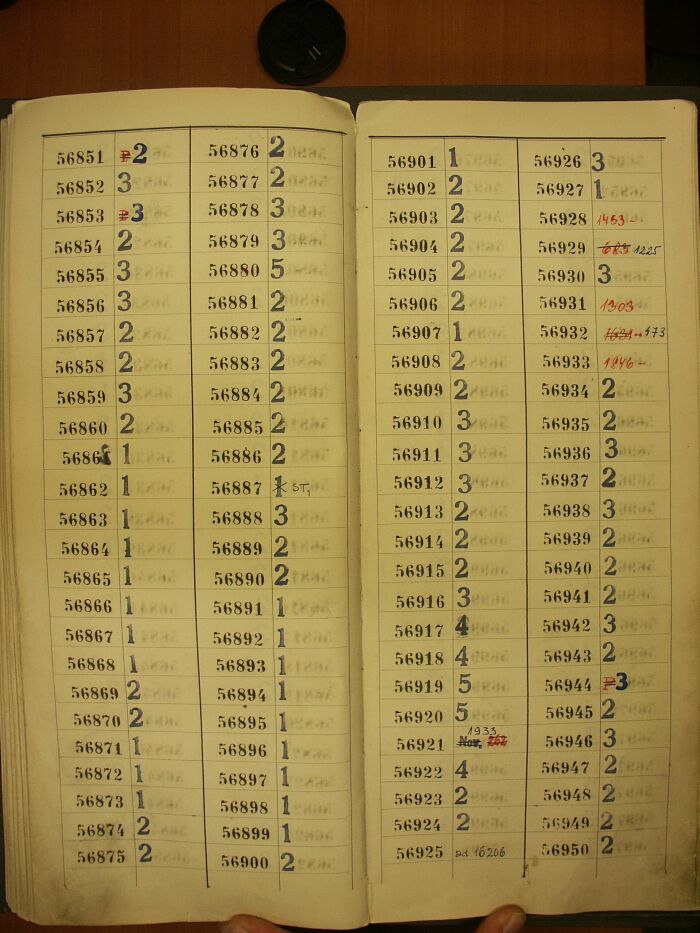 56851 P 2
56852 3
56853 P 3
56854 2
56855 3
56856 3
56857 2
56858 2
56859 3
56860 2
5686 1
56862 1
56863 1
56864 1
56865 1
56866 1
56867 1
56868 1
56869 2
56870 2
56871 1
56872 1
56873 1
56874 2
56875 2
56876 2
56877 2
56878 3
56879 3
56880 5
56881 2
56882 2
56883 2
56884 2
56885 2
56886 2
56887 1 ST,
56888 3
56889 2
56890 2
56891 1
56892 1
56893 1
56894 1
56895 1
56896 1
56897 1
56898 1
56899 1
56900 2
56901 1
56902 2
56903 2
56904 2
56905 2
56906 2
56907 1
56908 2
56909 2
56910 3
56911 3
56912 3
56913 2
56914 2
56915 2
56916 3
56917 4
56918 4
56919 5
56920 5
1933
56921 Nov. 262
56922 4
56923 2
56924 2
56925 ad 16206
56926 3
56927 1
56928 1453-
56929 685 1225
56930 3
56931 1303
56932 473
56933 1846-
56934 2
56935 2
56936 3
56937 2
56938 3
56939 2
56940 2
56941 2
56942 3
56943 2
56944 P 3
56945 2
56946 3
56947 2
56948 2
56949 2
56950 2